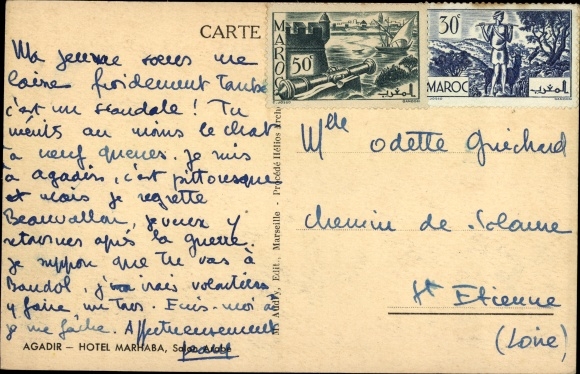 CARTE
Ma jeune soeur me
laisse froidement tomber
c'est un scandale ! Tu
mérites au moins le chat
à neuf queues. Je suis
à agadir, c'est pittoresque
et mais je regrette
Beauvallon, je veux y
retourner après la guerre.
Je suppose que tu vas à
Bandol, j'irais volontiers
y faire un tour. Ecris-moi où
je me fâche. Affectueusement
AGADIR — HOTEL MARHABA, Salon Arabe
M. Audry, Edit., Marseille - Procédé Hélios
MAROC
50c
المغرب
30c
MAROC
المغرب
Mlle Odette Guichard
chemin de Solaure
St Etienne
(Loire)